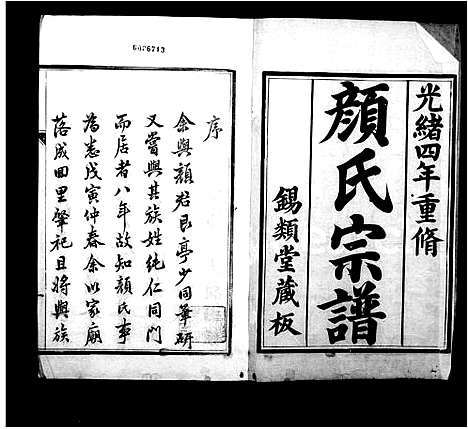 光緒四年重脩
顏氏宗譜
錫類堂藏板
序
余與顏君艮亭少同筆研
又嘗與其族姓純仁同門
而居者八年故知顏氏事
為悉戊寅仲春余以家廟
落成回里肇祀且將與族